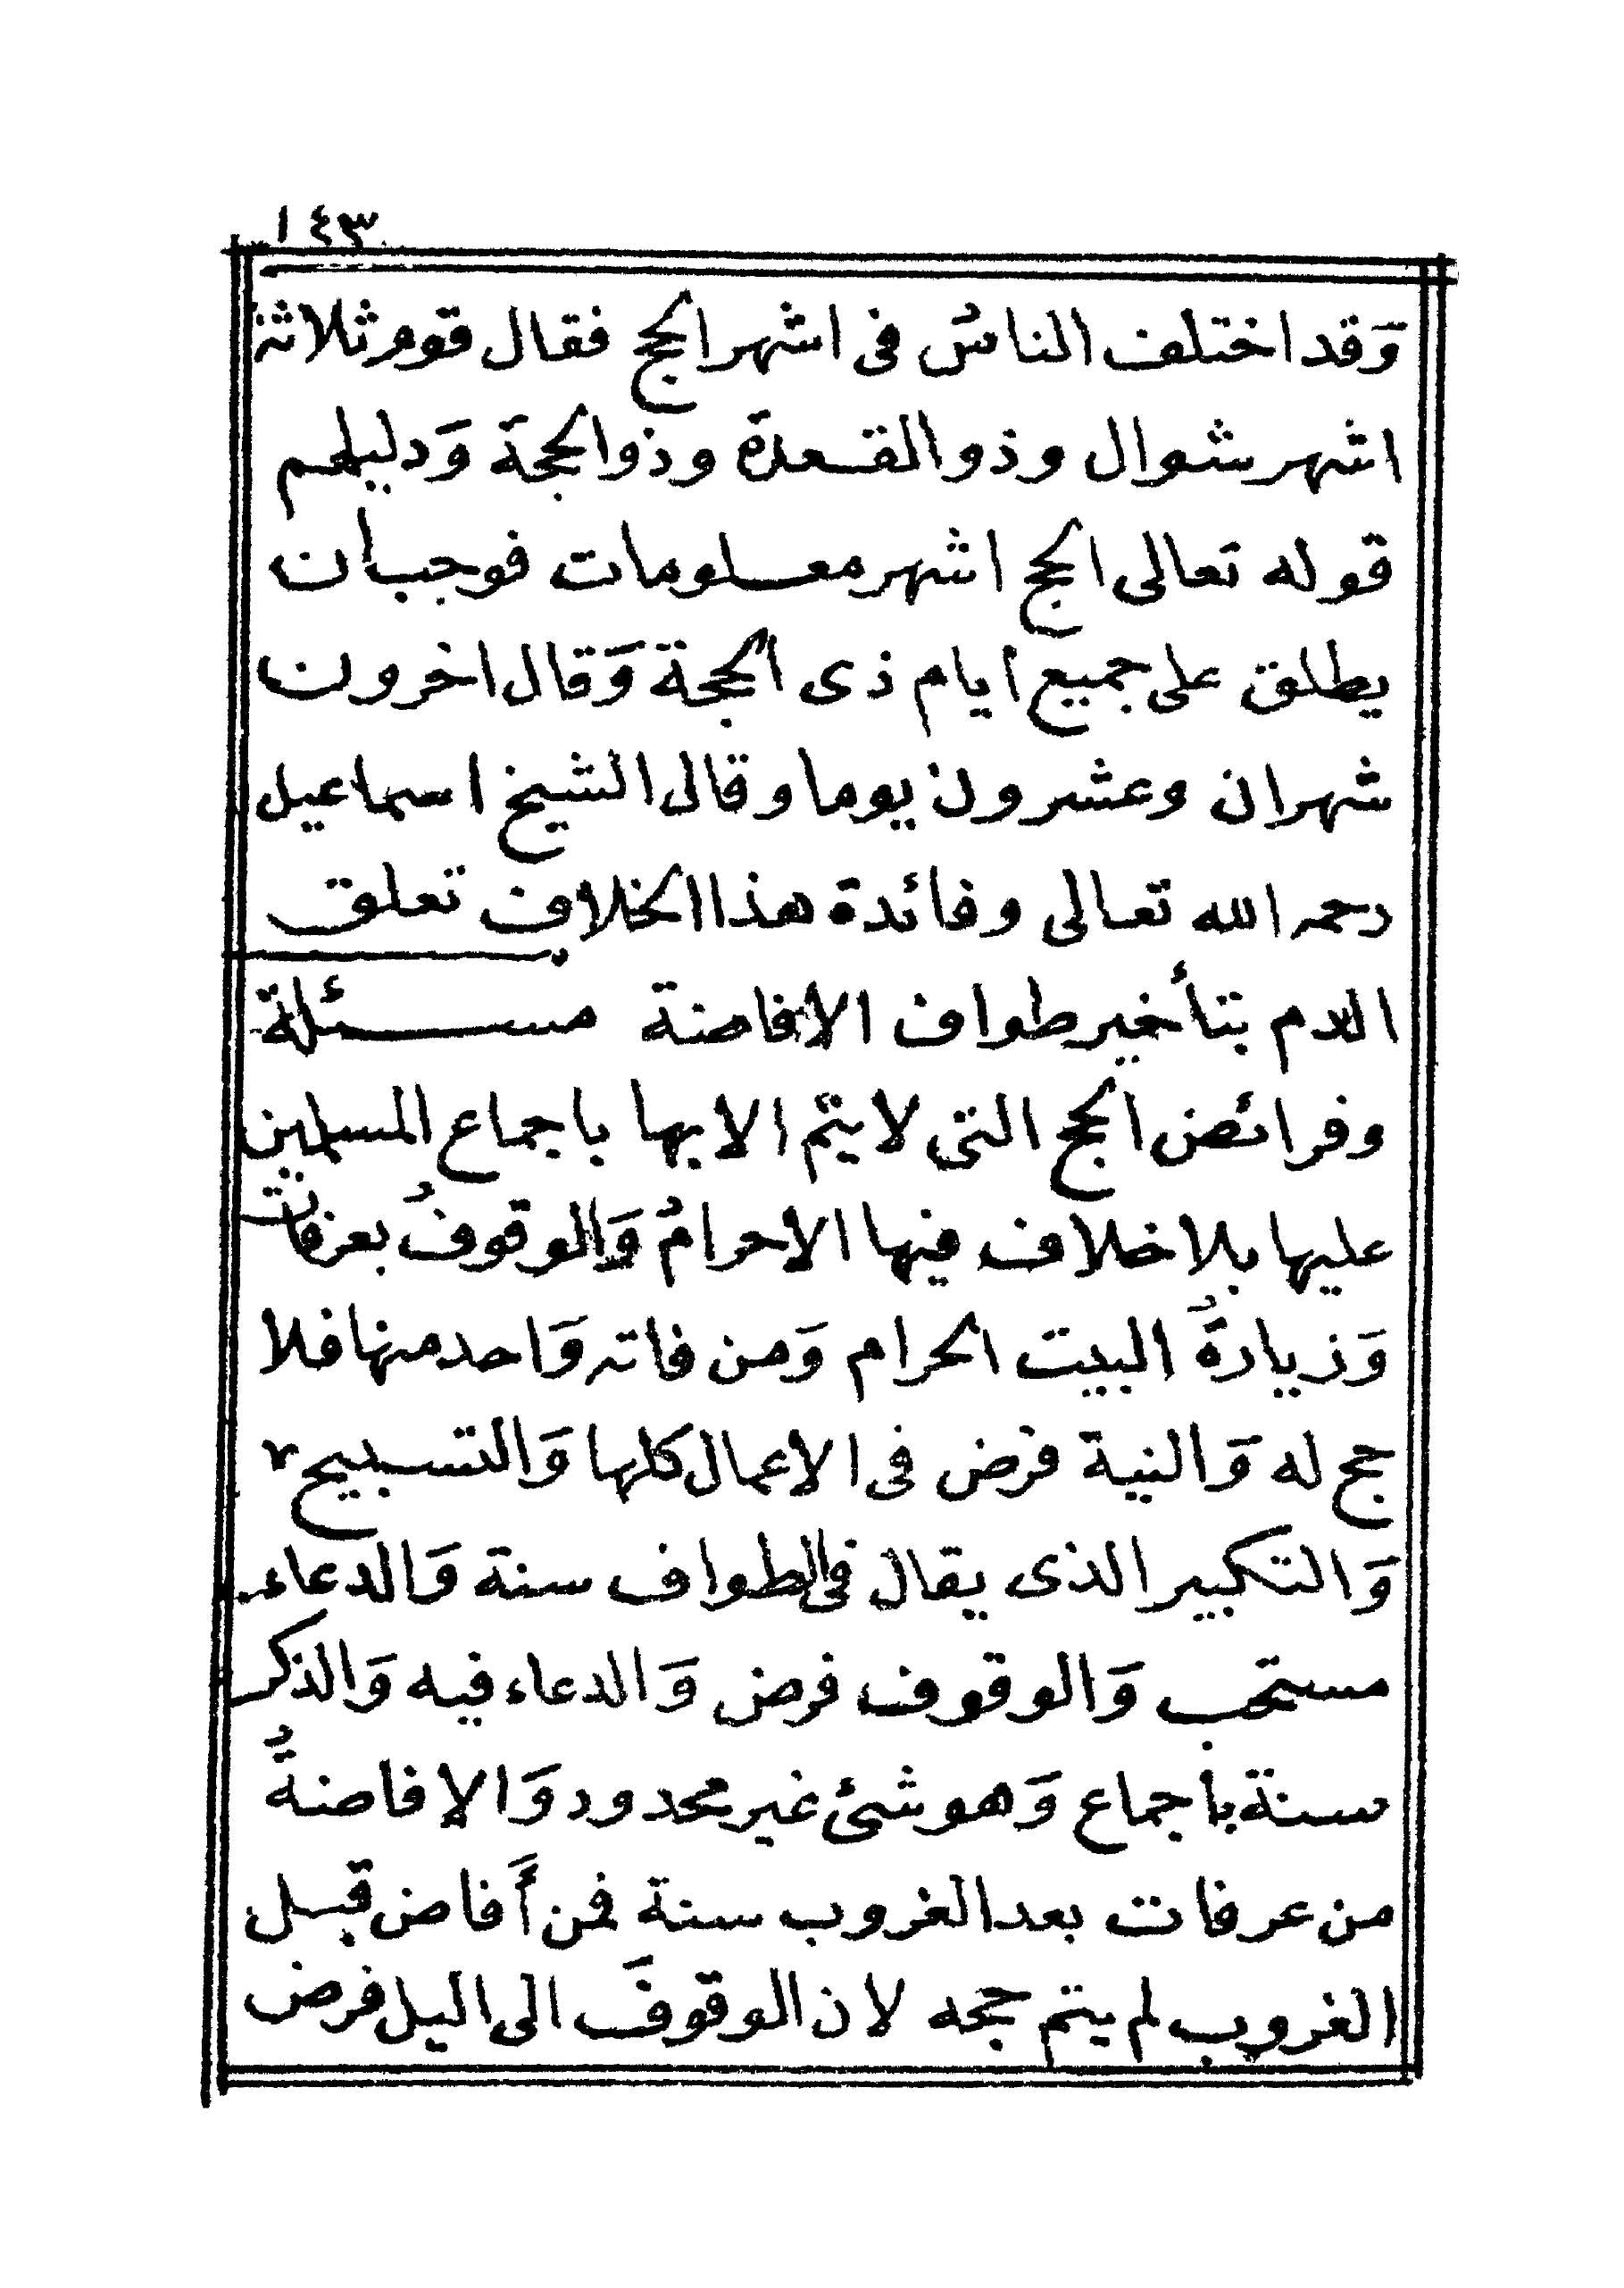 ١٤٣
وَقد اختلف الناسُ فى اشهر الحج فقال قوم ثلاثة
اشهر شوال وذو القعدة وذو الحجة وَدليلهم
قوله تعالى الحج اشهر معلومات فوجب أن
يطلق على جميع ايام ذى الحجة وَقال اخرون
شهران وعشرون يوما وقال الشيخ اسماعيل
رحمه الله تعالى وفائدة هذا الخلاف تعلق
الدم بتأخير طواف الافاضة مسئلة
وفرائض الحج التى لا يتم الا بها باجماع المسلمين
عليها بلا خلاف فيها الاحرامُ وَالوقوفُ بعرفات
وَزيارةُ البيت الحرام وَمن فاته وَاحد منها فلا
حج له وَالنية فرض فى الاعمال كلها وَالتسبيح
وَالتكبير الذى يقال فى الطواف سنة وَالدعاء
مستحب وَالوقوف فرض وَالدعاء فيه وَالذكر
سنة باجماع وَهو شئ غير محدود وَالافاضةُ
من عرفات بعد الغروب سنة فمن أَفاض قبل
الغروب لم يتم حجه لان الوقوفَ الى اليل فرض